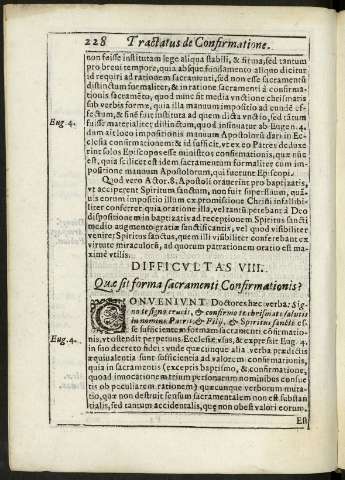 228 Tractatus de Confirmatione.
non fuisse institutam lege aliqua stabili, & firma, sed tantum
pro brevi tempore, quia absque fundamento aliquo dicitur
id requiri ad rationem sacramenti, sed non esse sacramentū
distinctum formaliter, & in ratione sacramenti à confirma-
tionis sacramēto, quod nunc fit media vnctione chrismatis
sub verbis formæ, quia illa manuum impositio ad eundē ef-
fectum, & finē fuit instituta ad quem dicta vnctio, sed tātum
fuisse materialiter distinctum, quod insinuatur ab Eugen. 4.
Eug. 4.
dum ait loco impositionis manuum Apostolorū dari in Ec-
clesia confirmationem: & id sufficit, vt ex eo Patres deduxe
rint solos Episcopos esse ministros confirmationis, quæ nūc
est, quia scilicet est idem sacramentum formaliter cum im-
positione manuum Apostolorum, qui fuerunt Episcopi.
Quod vero Actor. 8. Apostoli oraverint pro baptizatis,
vt acciperent Spiritum sanctum, non fuit superfluum, quā-
vis eorum impositio illum ex promissione Christi infallibi-
liter conferret quia oratione illa, vel tantū petebant à Deo
dispositionem in baptizatis ad receptionem Spiritus sancti
medio augmento gratiæ sanctificantis, vel quod visibiliter
veniret Spiritus sanctus, quem illi visibiliter conferebant ex
virtute miraculosa, ad quorum patrationem oratio est ma-
ximè vtilis.
DIFFICVLTAS VIII.
Quæ sit forma sacramenti Confirmationis?
CONVENIVNT Doctores hæc verba: Sig-
no te signo crucis, & confirmo te chrismate salutis
in nomine Patris, & Filij, & Spiritus sancti es-
se sufficientem formam sacramenti cōfirmatio-
nis, vt ostendit perpetuus Ecclesiæ vsus, & expressit Eug. 4.
Eug. 4.
in suo decreto fidei: vnde quæcunque alia verba prædictis
æquivalentia sunt sufficientia ad valorem confirmationis,
quia in sacramentis (exceptis baptismo, & confirmatione,
quoad invocationem trium personarum nominibus consue
tis ob peculiarem rationem) quæcunque verborum muta-
tio, quæ non destruit sensum sacramentalem non est substan
tialis, sed tantum accidentalis, quę non obest valori eorum.
Est